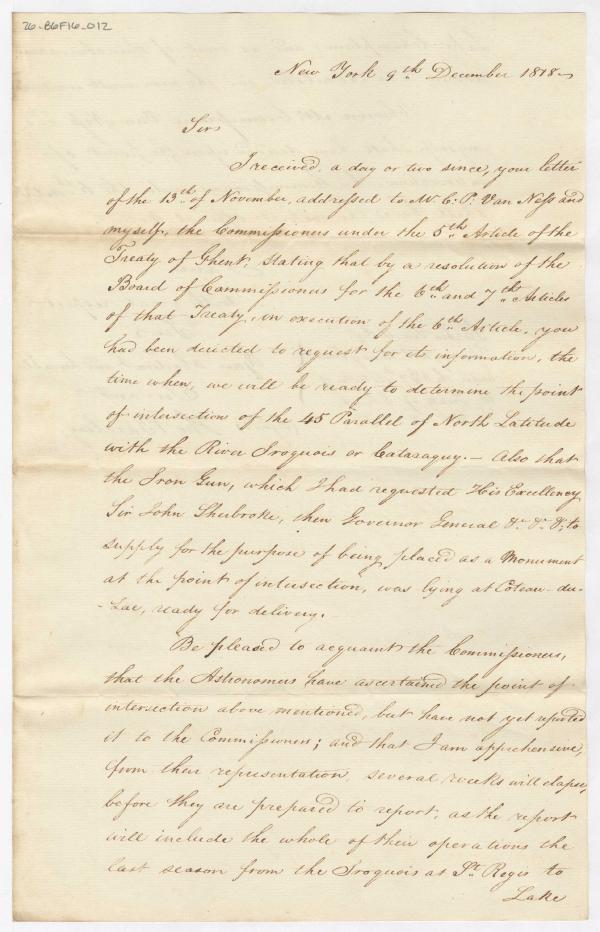 26-B6F16-012
New York 9th December 1818
Sir
I received a day or two since, your letter
of the 13th of November, addressed to Mr C. P. Van Ness and
myself, the Commissioners under the 5th Article of the
Treaty of Ghent, stating that by a resolution of the
Board of Commissioners for the 6th and 7th Articles
of that Treaty, in execution of the 6th Article, you
had been directed to request for its information, the
time when, we will be ready to determine the point
of intersection of the 45 Parallel of North Latitude
with the River Iroquois or Cataraguy. – Also that
the Iron Gun, which I had requested His Excellency
Sir John Sherbroke, then Governor General &c &c &c to
supply for the purpose of being placed as a Monument
at the point of intersection, was lying at Coteau-du-
-Lac, ready for delivery. –
Be pleased to acquaint the Commissioners,
that the Astronomers have ascertained the point of
intersection above mentioned, but have not yet reported
it to the Commissioners; and that I am apprehensive,
from their representation, several weeks will elapse,
before they are prepared to report, as the report
will include the whole of their operations the
last season from the Iroquois at St Regis to
Lake